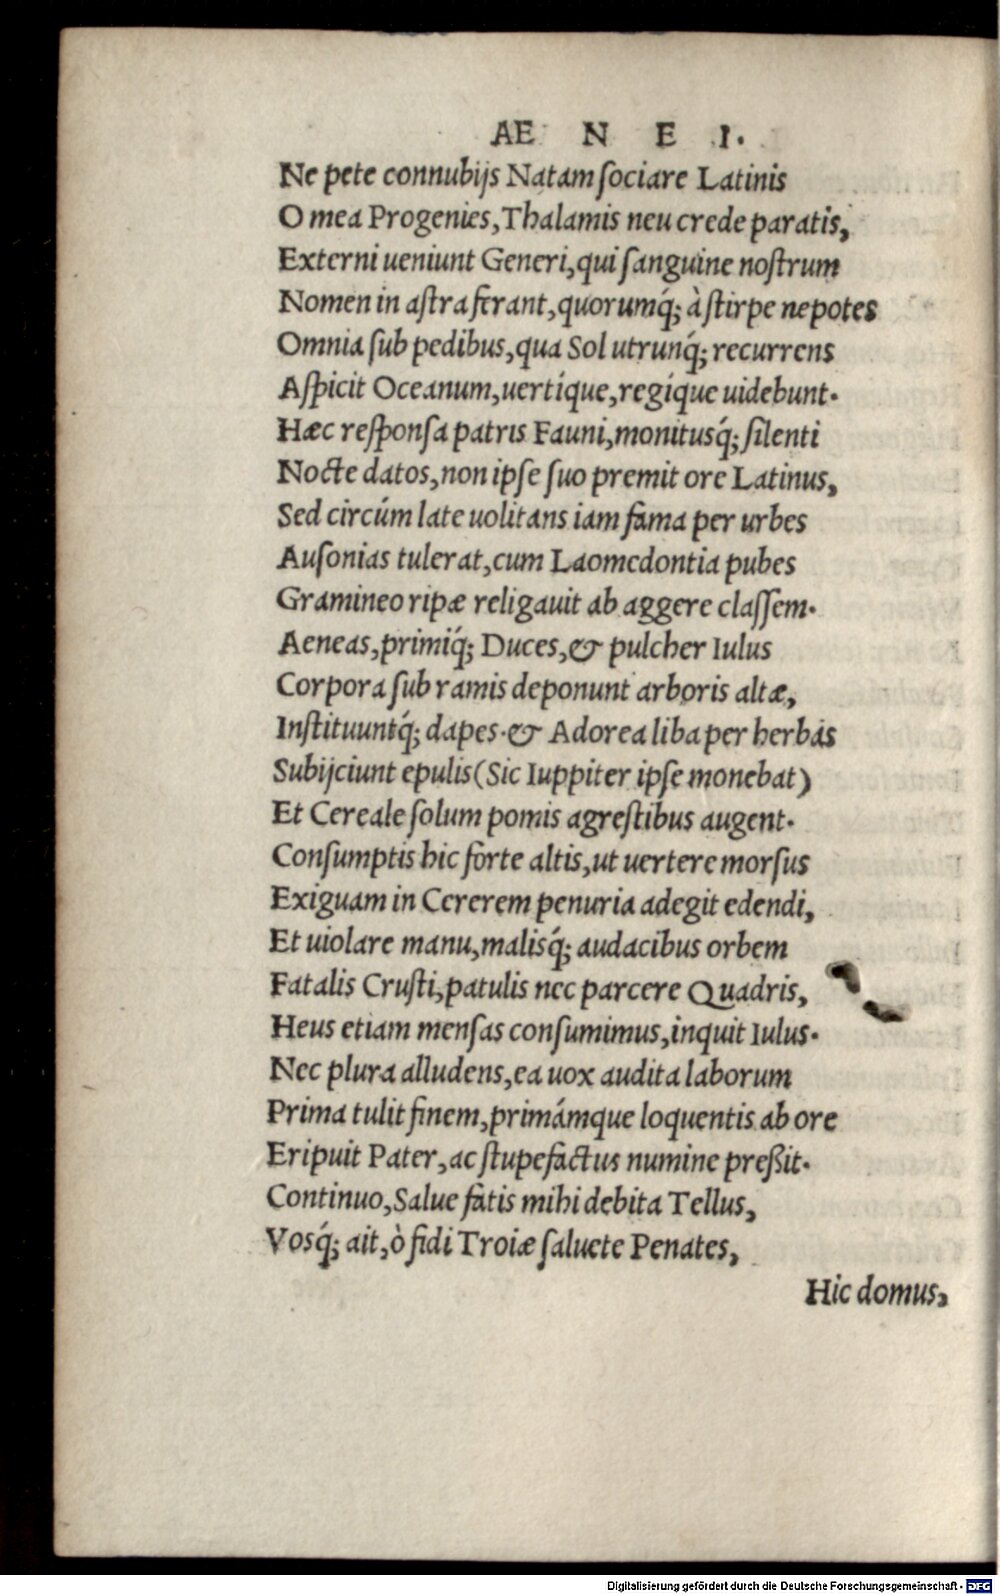 AE N E I.
Ne pete connubijs Natam ſociare Latinis
O mea Progenies, Thalamis neu crede paratis,
Externi ueniunt Generi, qui ſanguine noſtrum
Nomen in aſtra ferant, quorumq́; à ſtirpe nepotes
Omnia ſub pedibus, qua Sol utrunq́; recurrens
Aſpicit Oceanum, uertíque, regíque uidebunt.
Hæc reſponſa patris Fauni, monitusq́; ſilenti
Nocte datos, non ipſe ſuo premit ore Latinus,
Sed circúm late uolitans iam fama per urbes
Auſonias tulerat, cum Laomedontia pubes
Gramineo ripæ religauit ab aggere claſſem.
Aeneas, primiq́; Duces, & pulcher Iulus
Corpora ſub ramis deponunt arboris altæ,
Inſtituuntq́; dapes. & Adorea liba per herbas
Subijciunt epulis (Sic Iuppiter ipſe monebat)
Et Cereale ſolum pomis agreſtibus augent.
Conſumptis hic forte altis, ut uertere morſus
Exiguam in Cererem penuria adegit edendi,
Et uiolare manu, malisq́; audacibus orbem
Fatalis Cruſti, patulis nec parcere Quadris,
Heus etiam menſas conſumimus, inquit Iulus.
Nec plura alludens, ea uox audita laborum
Prima tulit finem, primámque loquentis ab ore
Eripuit Pater, ac ſtupefactus numine preßit.
Continuo, Salue fatis mihi debita Tellus,
Vosq́; ait, ò fidi Troiæ ſaluete Penates,
Hic domus,
Digitalisierung gefördert durch die Deutsche Forschungsgemeinschaft - DFG